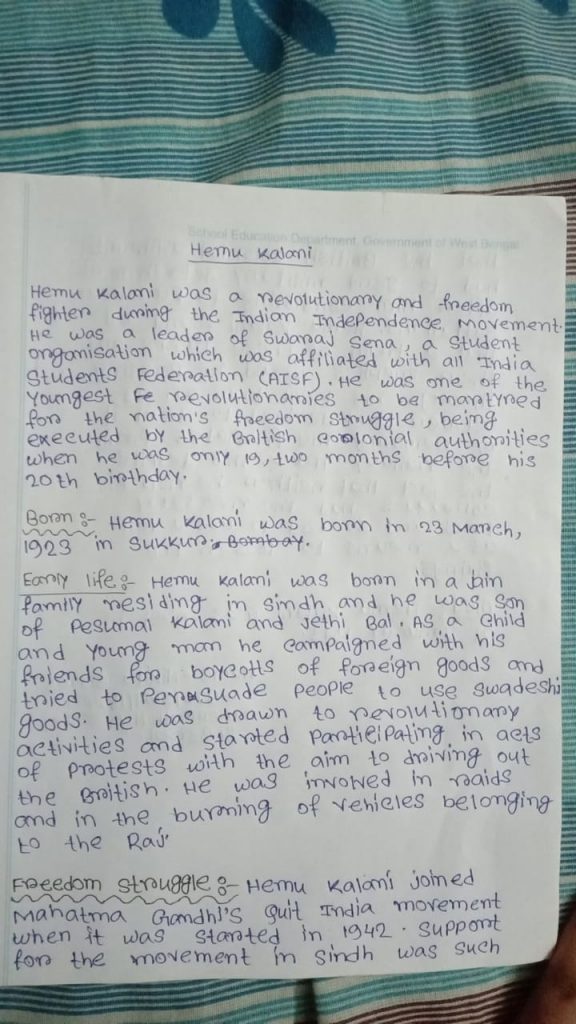 School Education Department, Government of West Bengal
Hemu Kalani
Hemu Kalani was a revolutionary and freedom
fighter during the Indian Independence Movement.
He was a leader of Swaraj Sena, a Student
organisation which was affiliated with all India
Students Federation (AISF). He was one of the
Youngest Fe revolutionaries to be martyred
for the nation's freedom struggle, being
executed by the British colonial authorities
when he was only 19, two months before his
20th birthday.
Born :- Hemu Kalani was born in 23 March,
1923 in Sukkur, Bombay.
Early life :- Hemu Kalani was born in a jain
family residing in sindh and he was son
of Pesumal Kalani and Jethi Bai. As a child
and young man he campaigned with his
friends for boycotts of foreign goods and
tried to Persuade People to use swadeshi
goods. He was drawn to revolutionary
activities and started participating in acts
of protests with the aim to driving out
the British. He was involved in raids
and in the burning of vehicles belonging
to the Raj.
Freedom struggle :- Hemu Kalani joined
Mahatma Gandhi's Quit India movement
when it was started in 1942. Support
for the movement in sindh was such